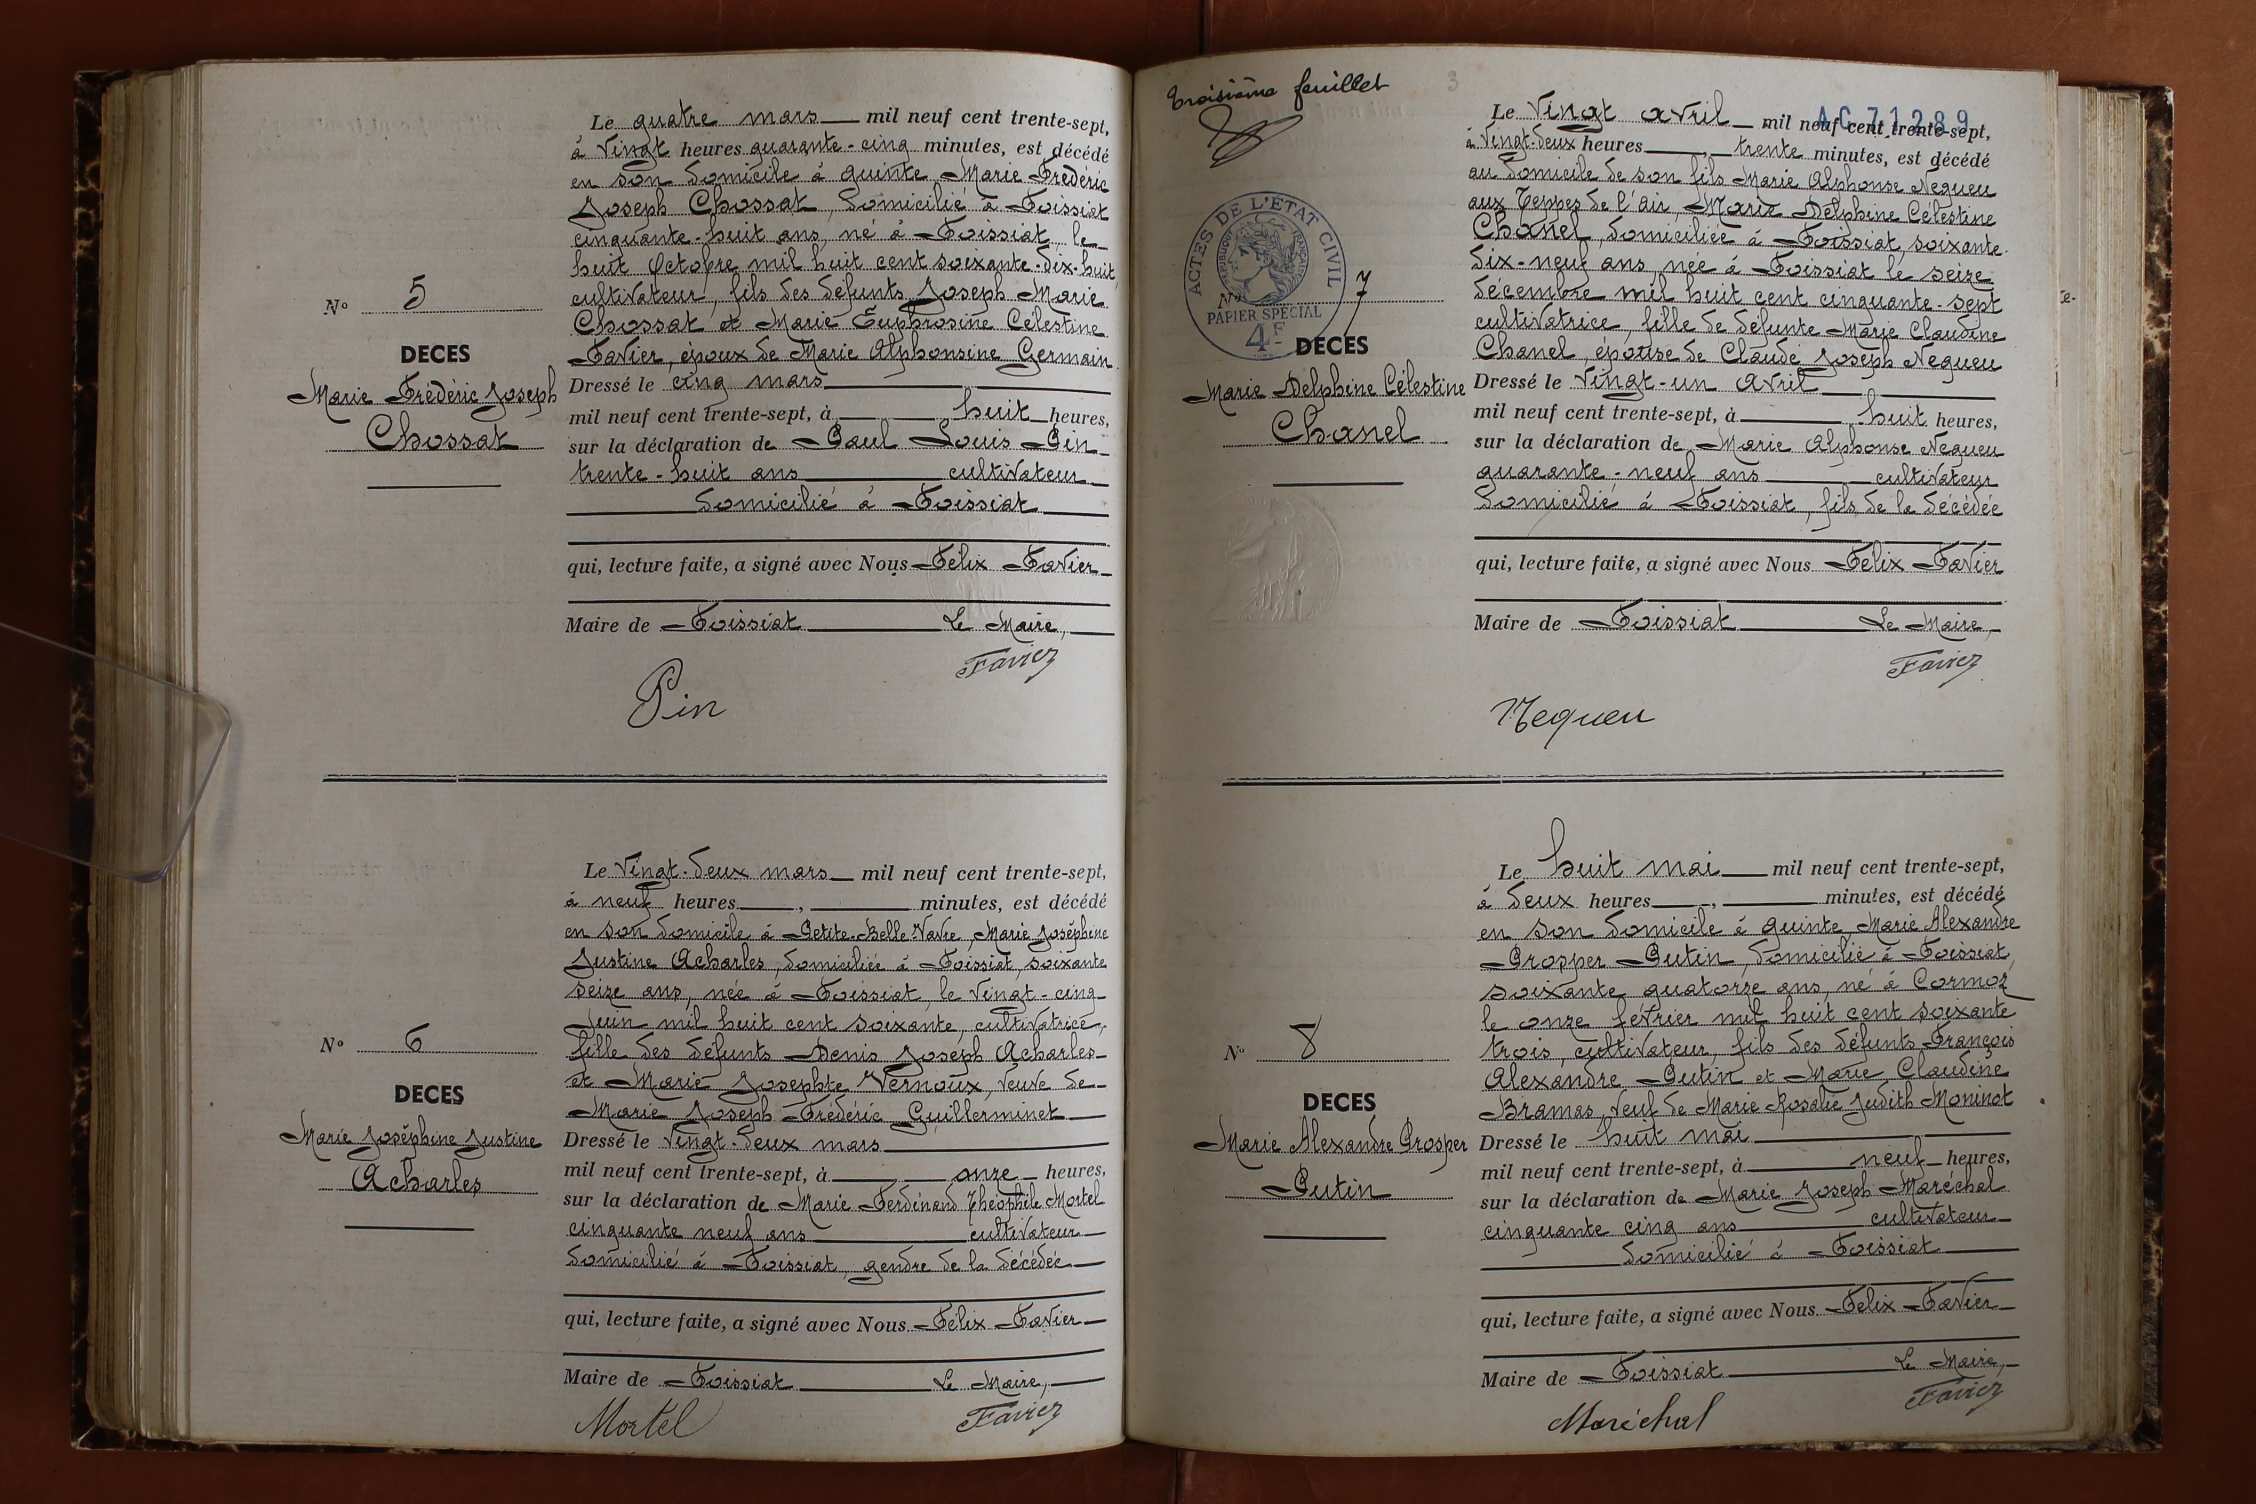 Le quatre mars mil neuf cent trente-sept,
à vingt heures quarante-cinq minutes, est décédé
en son domicile à Quinte, Marie Frédéric
Joseph Chossat, domicilié à Foissiat
cinquante-huit ans, né à Foissiat, le
huit Octobre mil huit cent soixante-dix-huit
cultivateur, fils des défunts Joseph Marie
Chossat et Marie Euphrosine Célestine
Favier, époux de Marie Alphonsine Germain
Dressé le cinq mars
mil neuf cent trente-sept, à huit heures,
sur la déclaration de Paul Louis Pin
trente-huit ans cultivateur
domicilié à Foissiat
qui, lecture faite, a signé avec Nous Félix Favier
Maire de Foissiat Le Maire,
Favier
Pin
No 5
DECES
Marie Frédéric Joseph
Chossat
Le vingt-deux mars mil neuf cent trente-sept,
à neuf heures, minutes, est décédé
en son domicile à Petite-Belle-Vavre, Marie Joséphine
Justine Acharles, domiciliée à Foissiat, soixante
seize ans, née à Foissiat, le vingt-cinq
Juin mil huit cent soixante, cultivatrice,
fille des défunts Denis Joseph Acharles
et Marie Josephte Vernoux, veuve de
Marie Joseph Frédéric Guillerminet
Dressé le vingt-deux mars
mil neuf cent trente-sept, à onze heures,
sur la déclaration de Marie Ferdinand Théophile Mortel
cinquante neuf ans cultivateur
domicilié à Foissiat, gendre de la décédée
qui, lecture faite, a signé avec Nous Félix Favier
Maire de Foissiat Le Maire,
Favier
Mortel
No 6
DECES
Marie Joséphine Justine
Acharles
Troisième feuillet
3
AC 71289
Le vingt avril mil neuf cent trente-sept,
à vingt-deux heures, trente minutes, est décédé
au domicile de son fils Marie Alphonse Nequeu
aux Teppes de l'air, Marie Delphine Célestine
Chanel, domiciliée à Foissiat, soixante
dix-neuf ans, née à Foissiat le seize
décembre mil huit cent cinquante-sept
cultivatrice, fille de défunte Marie Claudine
Chanel, épouse de Claude Joseph Nequeu
Dressé le vingt-un avril
mil neuf cent trente-sept, à huit heures,
sur la déclaration de Marie Alphonse Nequeu
quarante-neuf ans cultivateur
domicilié à Foissiat, fils de la décédée
qui, lecture faite, a signé avec Nous Félix Favier
Maire de Foissiat Le Maire,
Favier
Nequeu
ACTES DE L'ETAT CIVIL
REPUBLIQUE FRANÇAISE
PAPIER SPECIAL
4F
No 7
DECES
Marie Delphine Célestine
Chanel
Le huit mai mil neuf cent trente-sept,
à deux heures, minutes, est décédé
en son domicile à Quinte, Marie Alexandre
Prosper Putin, domicilié à Foissiat,
soixante quatorze ans, né à Cormoz
le onze février mil huit cent soixante
trois, cultivateur, fils des défunts François
Alexandre Putin et Marie Claudine
Bramas, veuf de Marie Rosalie Judith Moninot
Dressé le huit mai
mil neuf cent trente-sept, à neuf heures,
sur la déclaration de Marie Joseph Maréchal
cinquante cinq ans cultivateur
domicilié à Foissiat
qui, lecture faite, a signé avec Nous Félix Favier
Maire de Foissiat Le Maire,
Favier
Maréchal
No 8
DECES
Marie Alexandre Prosper
Putin